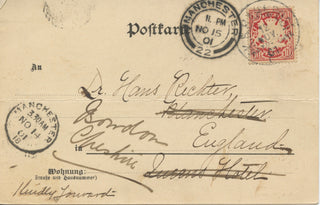 Postkarte
MANCHESTER
11. PM
NO 15
01
22
An
Dr. Hans Richter,
Manchester
Bowdon
England
Cheshire
in
Queens Hotel
MANCHESTER
3.30AM
NO 14
01
Wohnung:
(Straße und Hausnummer)
Kindly forward